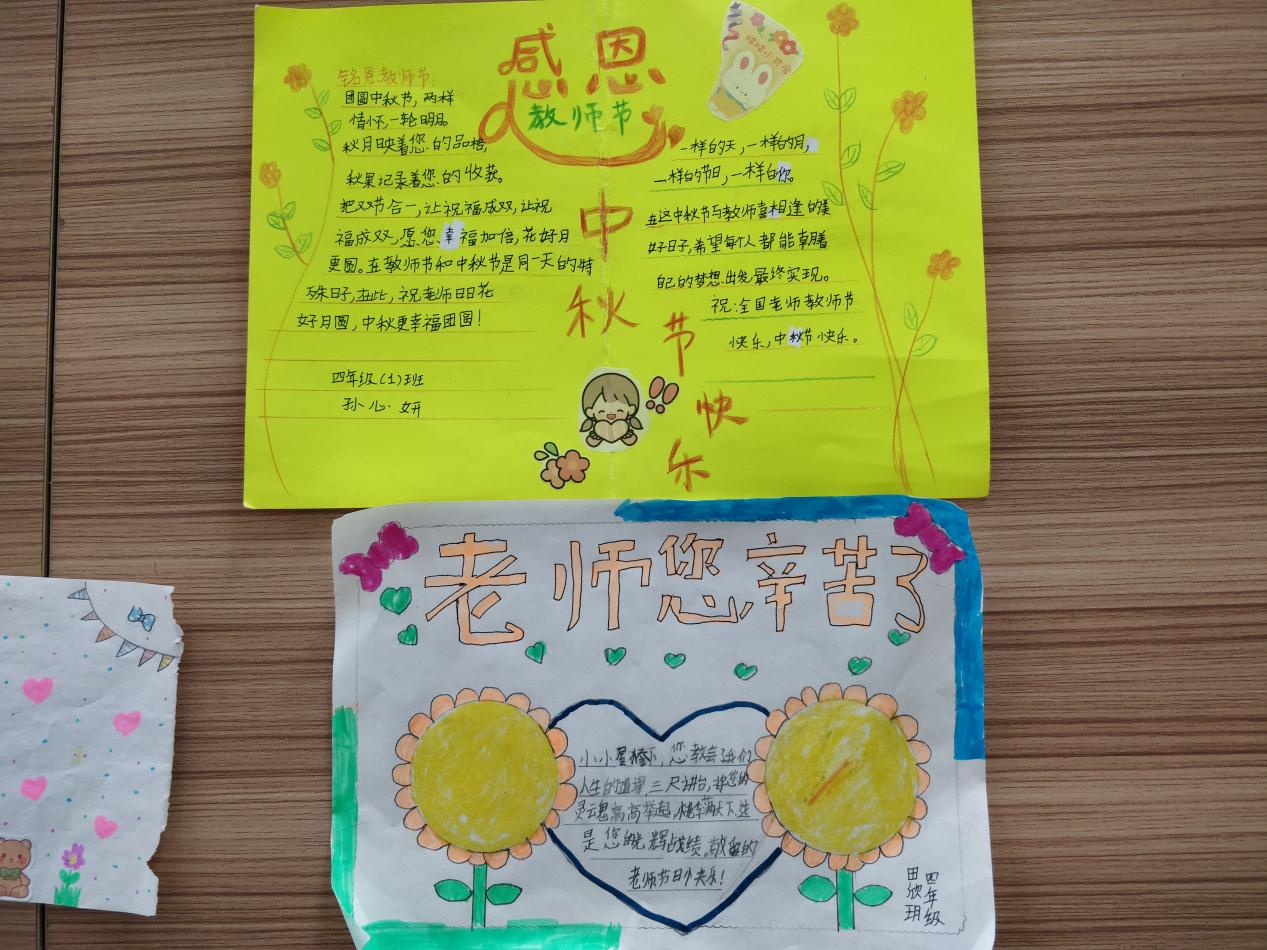 感恩
教师节
中秋节快乐
铭恩教师节,
团圆中秋节,两样
情怀,一轮明月。
秋月映着您的品格,
秋果记录着您的收获。
把双节合一,让祝福成双,让祝
福成双,愿您幸福加倍,花好月
更圆。在教师节和中秋节是同一天的特
殊日子,在此,祝老师日日花
好月圆,中秋更幸福团圆!
四年级(1)班
孙心妍
一样的天,一样的月,
一样的节日,一样的你。
在这中秋节与教师喜相逢的美
好日子,希望每个人都能朝着
自己的梦想出发最终实现。
祝:全国老师教师节
快乐,中秋节快乐。
老师您辛苦了
小小屋檐下,您教会了我们
人生的道理,三尺讲台,
灵魂高高举起,桃李满天下这
是您的光辉战绩。敬爱的
老师节日快乐!
四年级
田欣玥